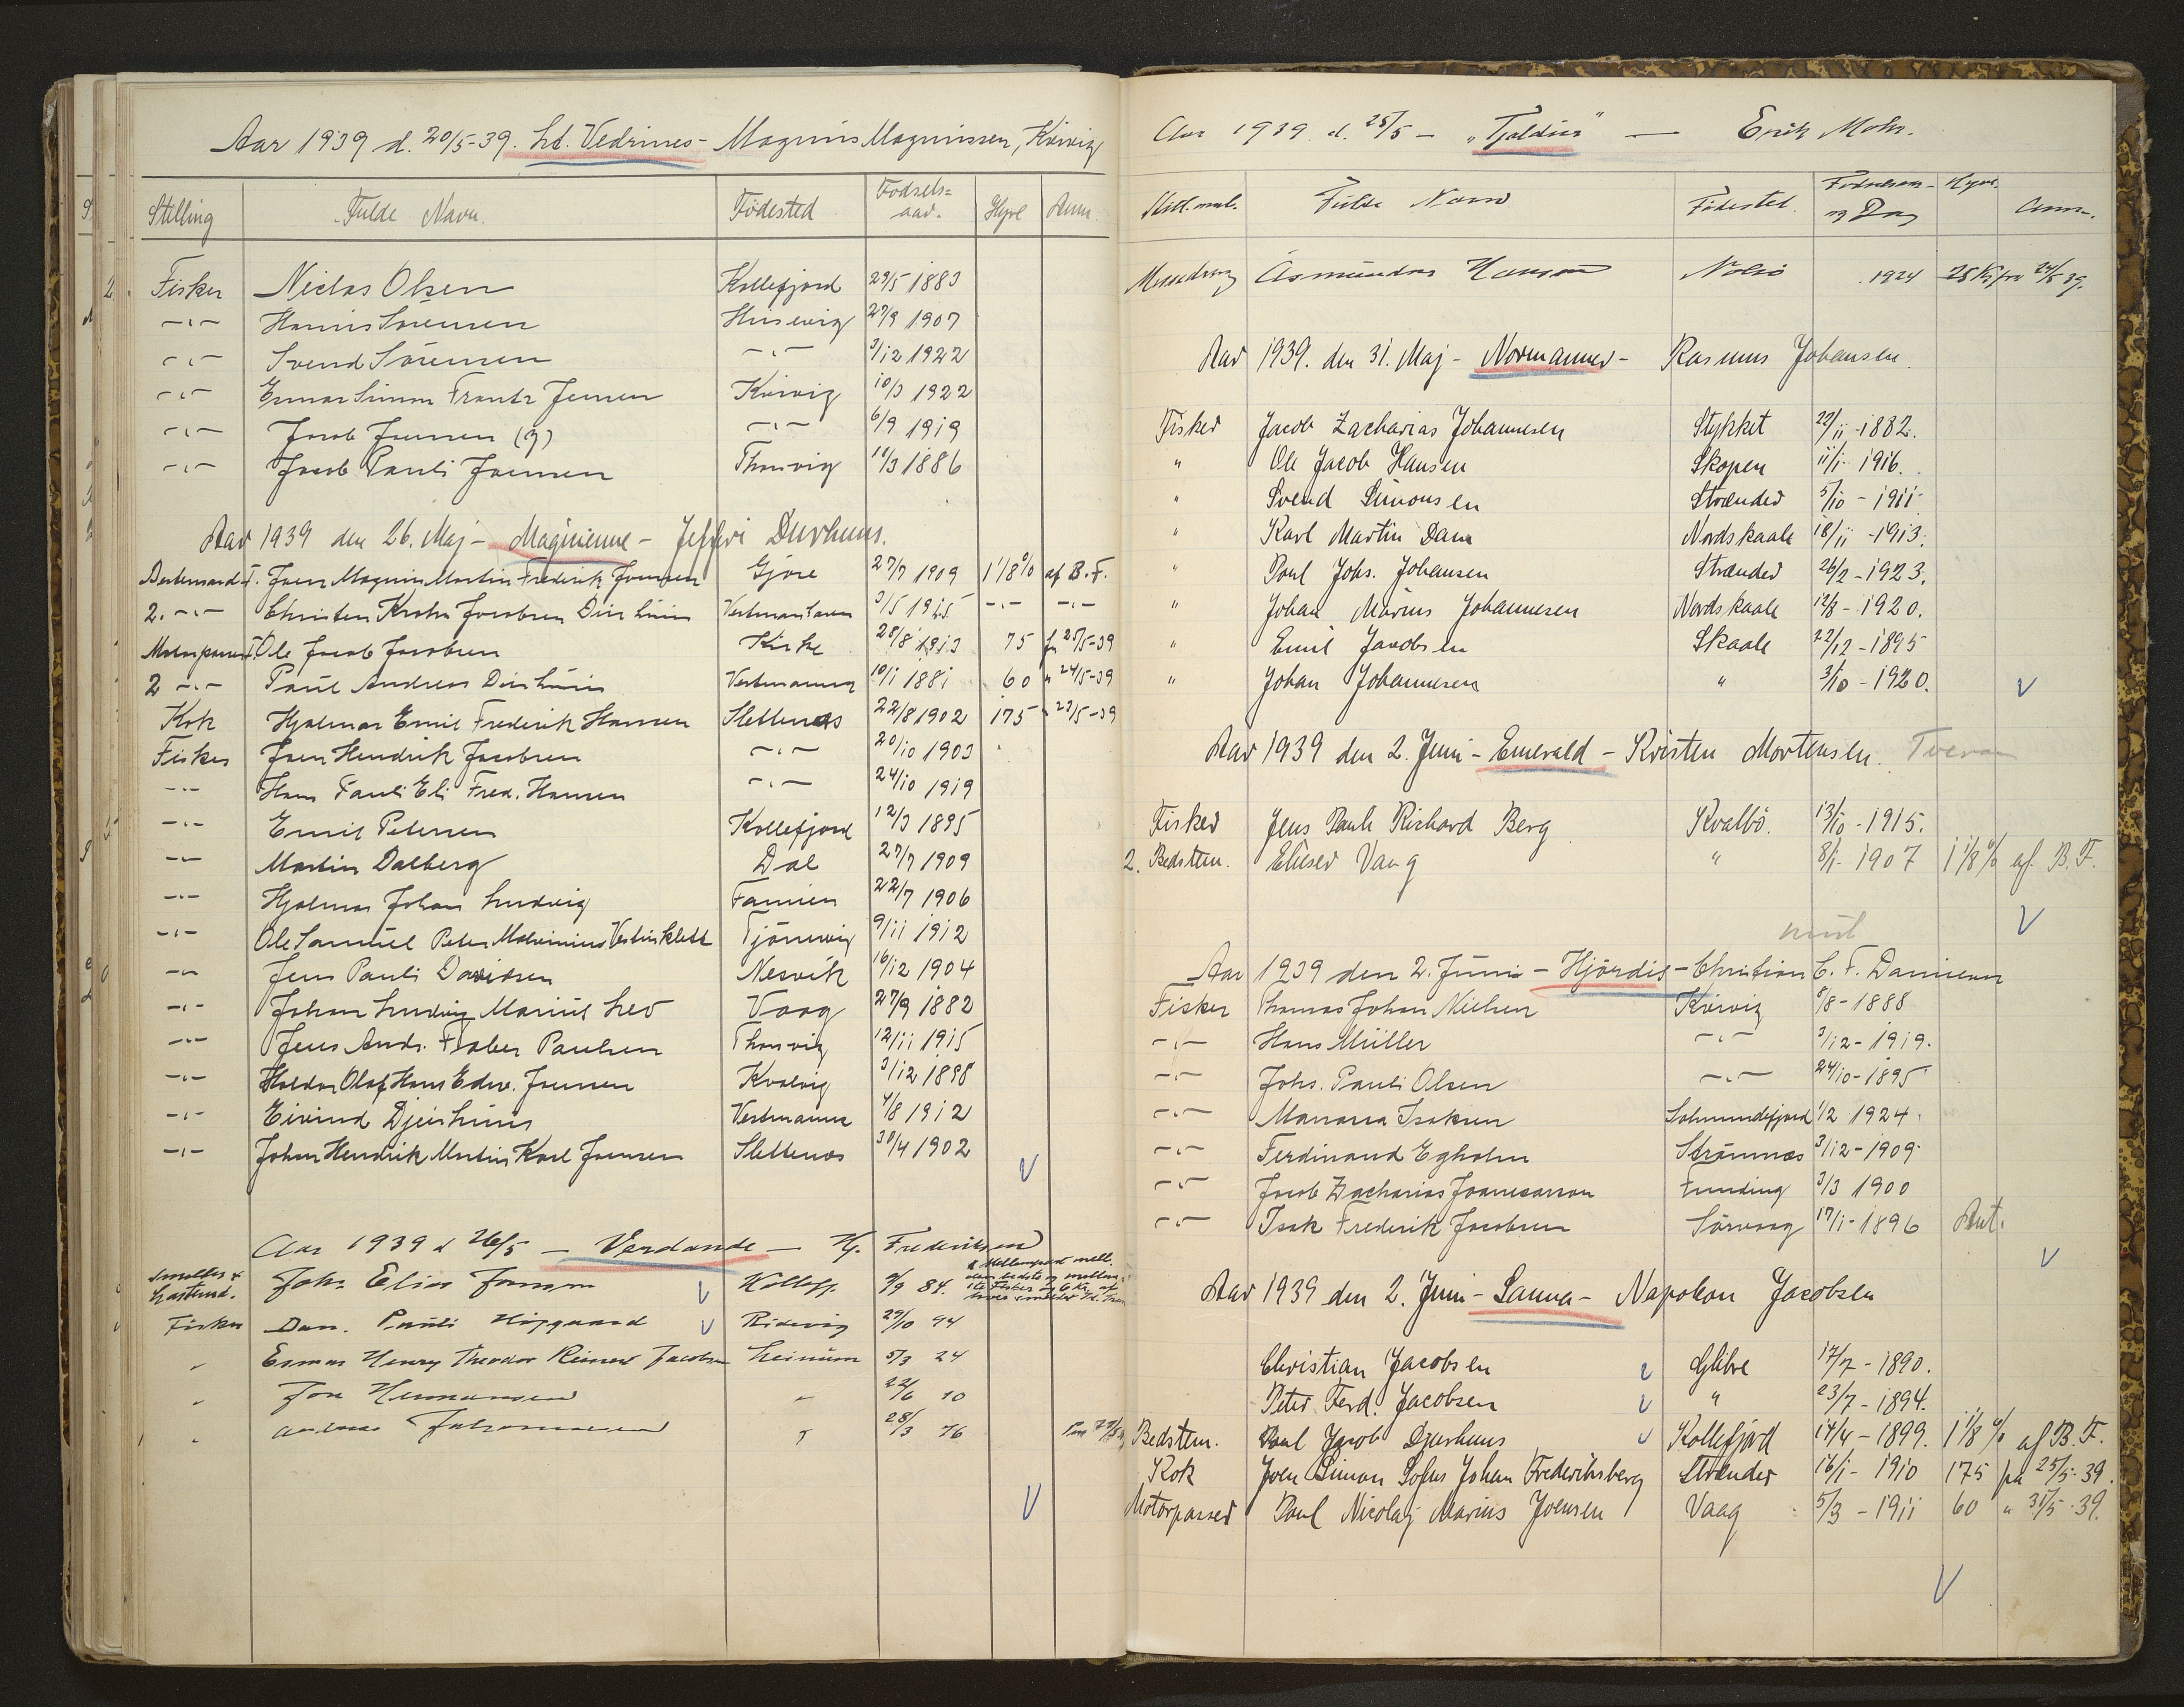 Aar 1939 d. 20/5-39. Lt. Vedrines - Magnus Magnussen, Kvivig
Stilling Fulde Navn. Födested Födsels=aar. Hyre Anm.
Fisker Niclas Olsen Kollefjord 29/5 1883
-"- Hanus Sörensen Husevig 27/9 1907
-"- Svend Sörensen -"- 3/12 1922
-"- Ennar Simon Frantz Jensen Kvivig 10/3 1922
-"- Jacob Joensen (g) -"- 6/9 1919
-"- Jacob Pauli Joensen Thorsvig 11/3 1886
Aar 1939 den 26. Maj - Magnienne - Jefferi Durhuus.
Bestemand F. Joen Magnus Martin Frederik Joensen Gjóre 27/7 1909 1 1/8 % af B. F.
2. -"- Christen Krohn Jacobsen Durhuus Vestmanhavn 3/5 1915 -"- -"-
Motorpasser F. Ole Jacob Jacobsen Kirke 28/8 1913 75 fr 25/5-39
2 -"- Paul Andreas Durhuus Vestmanna 10/1 1881 60 " 24/5-39
Kok Hjalmar Emil Frederik Hansen Slettenæs 22/8 1902 175 " 23/5-39
Fisker Joen Hendrik Jacobsen -"- 20/10 1903
-"- Hans Pauli Eli Fred. Hansen -"- 24/10 1919
-"- Emil Petersen Kollefjord 12/3 1895
-"- Martin Dalberg Dal 27/7 1909
-"- Hjalmar Johan Ludvig Famien 22/7 1906
-"- Ole Samuel Peter Malvinius Vesturklett Tjörnevig 9/11 1912
-"- Jens Pauli Davidsen Nesvik 16/12 1904
-"- Johan Ludvig Marius Lev Vaag 27/9 1882
-"- Jens Andr. Fraber Paulsen Thorsvig 12/11 1915
-"- Haldor Olaf Hans Edw. Joensen Kvalvig 3/12 1898
-"- Eivind Djurhuus Vestmanna 4/8 1912
-"- Johan Hendrik Martin Karl Joensen Slettenæs 30/4 1902
Aar 1939 d 26/5 - Verdande - Frederiksen
Johs Elias Joensen Kollefj. 84.
Fisker Dan. Pauli Höjgaard Ridevig 29/10 94
" Esmar Henry Theodor Reinert Jacobsen Leinum 5/3 24
" Joe Hermansen " 22/6 10
" Andreas Johannesen " 28/3 76
Aar 1939 d. 25/5 - "Tjaldur" - Erik Mohr.
Fulde Navn Födested. og Dag Hyre. Anm.
Messedreng Asmundur Hansen Nolsö 1924 25 Kr fra 24/5 39.
Aar 1939. den 31. Maj - Normanner - Rasmus Johansen
Fisker Jacob Zacharias Johannesen Stykket 22/11 - 1882.
" Ole Jacob Hansen Skopen 11/1 - 1916.
" Svend Simonsen Strænder 5/10 - 1911
" Karl Martin Dam Nordskaale 18/11 - 1913.
" Poul Johs. Johansen Strænder 26/2 - 1923.
" Johan Márius Johannesen Nordskaale 12/8 - 1920.
" Emil Jacobsen Skaale 22/12 - 1895
" Johan Johannesen " 3/10 - 1920.
Aar 1939 den 2. Juni - Emerald - Kristen Mortensen. Tveraa
Fisker Jens Pauli Richard Berg Kvalbö. 13/10 - 1915.
2. Bedstem. Elieser Vang " 8/1 - 1907 1 1/8 % af B. F.
Aar 1939 den 2. Juni - Hjördis - Christian C. F. Danielsen
Fisker Thomas Johan Nielsen Kvivig 8/8 - 1888
-"- Hans Müller -"- 3/12 - 1919.
-"- Johs. Pauli Olsen -"- 24/10 - 1895
-"- Isaksen Solmundefjord 1/2 1924.
-"- Ferdinand Egholm Strömnæs 3/12 - 1909
-"- Jacob Zacharias Joanesarson Funding 3/3 1900
-"- Isak Frederik Jacobsen Sörvaag 17/1 - 1896 Ant.
Aar 1939 den 2. Juni - Sanna - Napoleon Jacobsen
Christian Jacobsen Glibre 17/7 - 1890.
Peter Ferd. Jacobsen " 23/7 - 1894.
Bedstem. Poul Jacob Djurhuus Kollefjord 14/4 - 1899. 1 1/8 % af B. F.
Kok Joen Simon Sofus Johan Frederiksberg Strænder 16/1 - 1910 175 fra 25/5-39.
Motorpasser Poul Nicolaj Marius Joensen Vaag 5/3 - 1911 60 " 31/5-39.